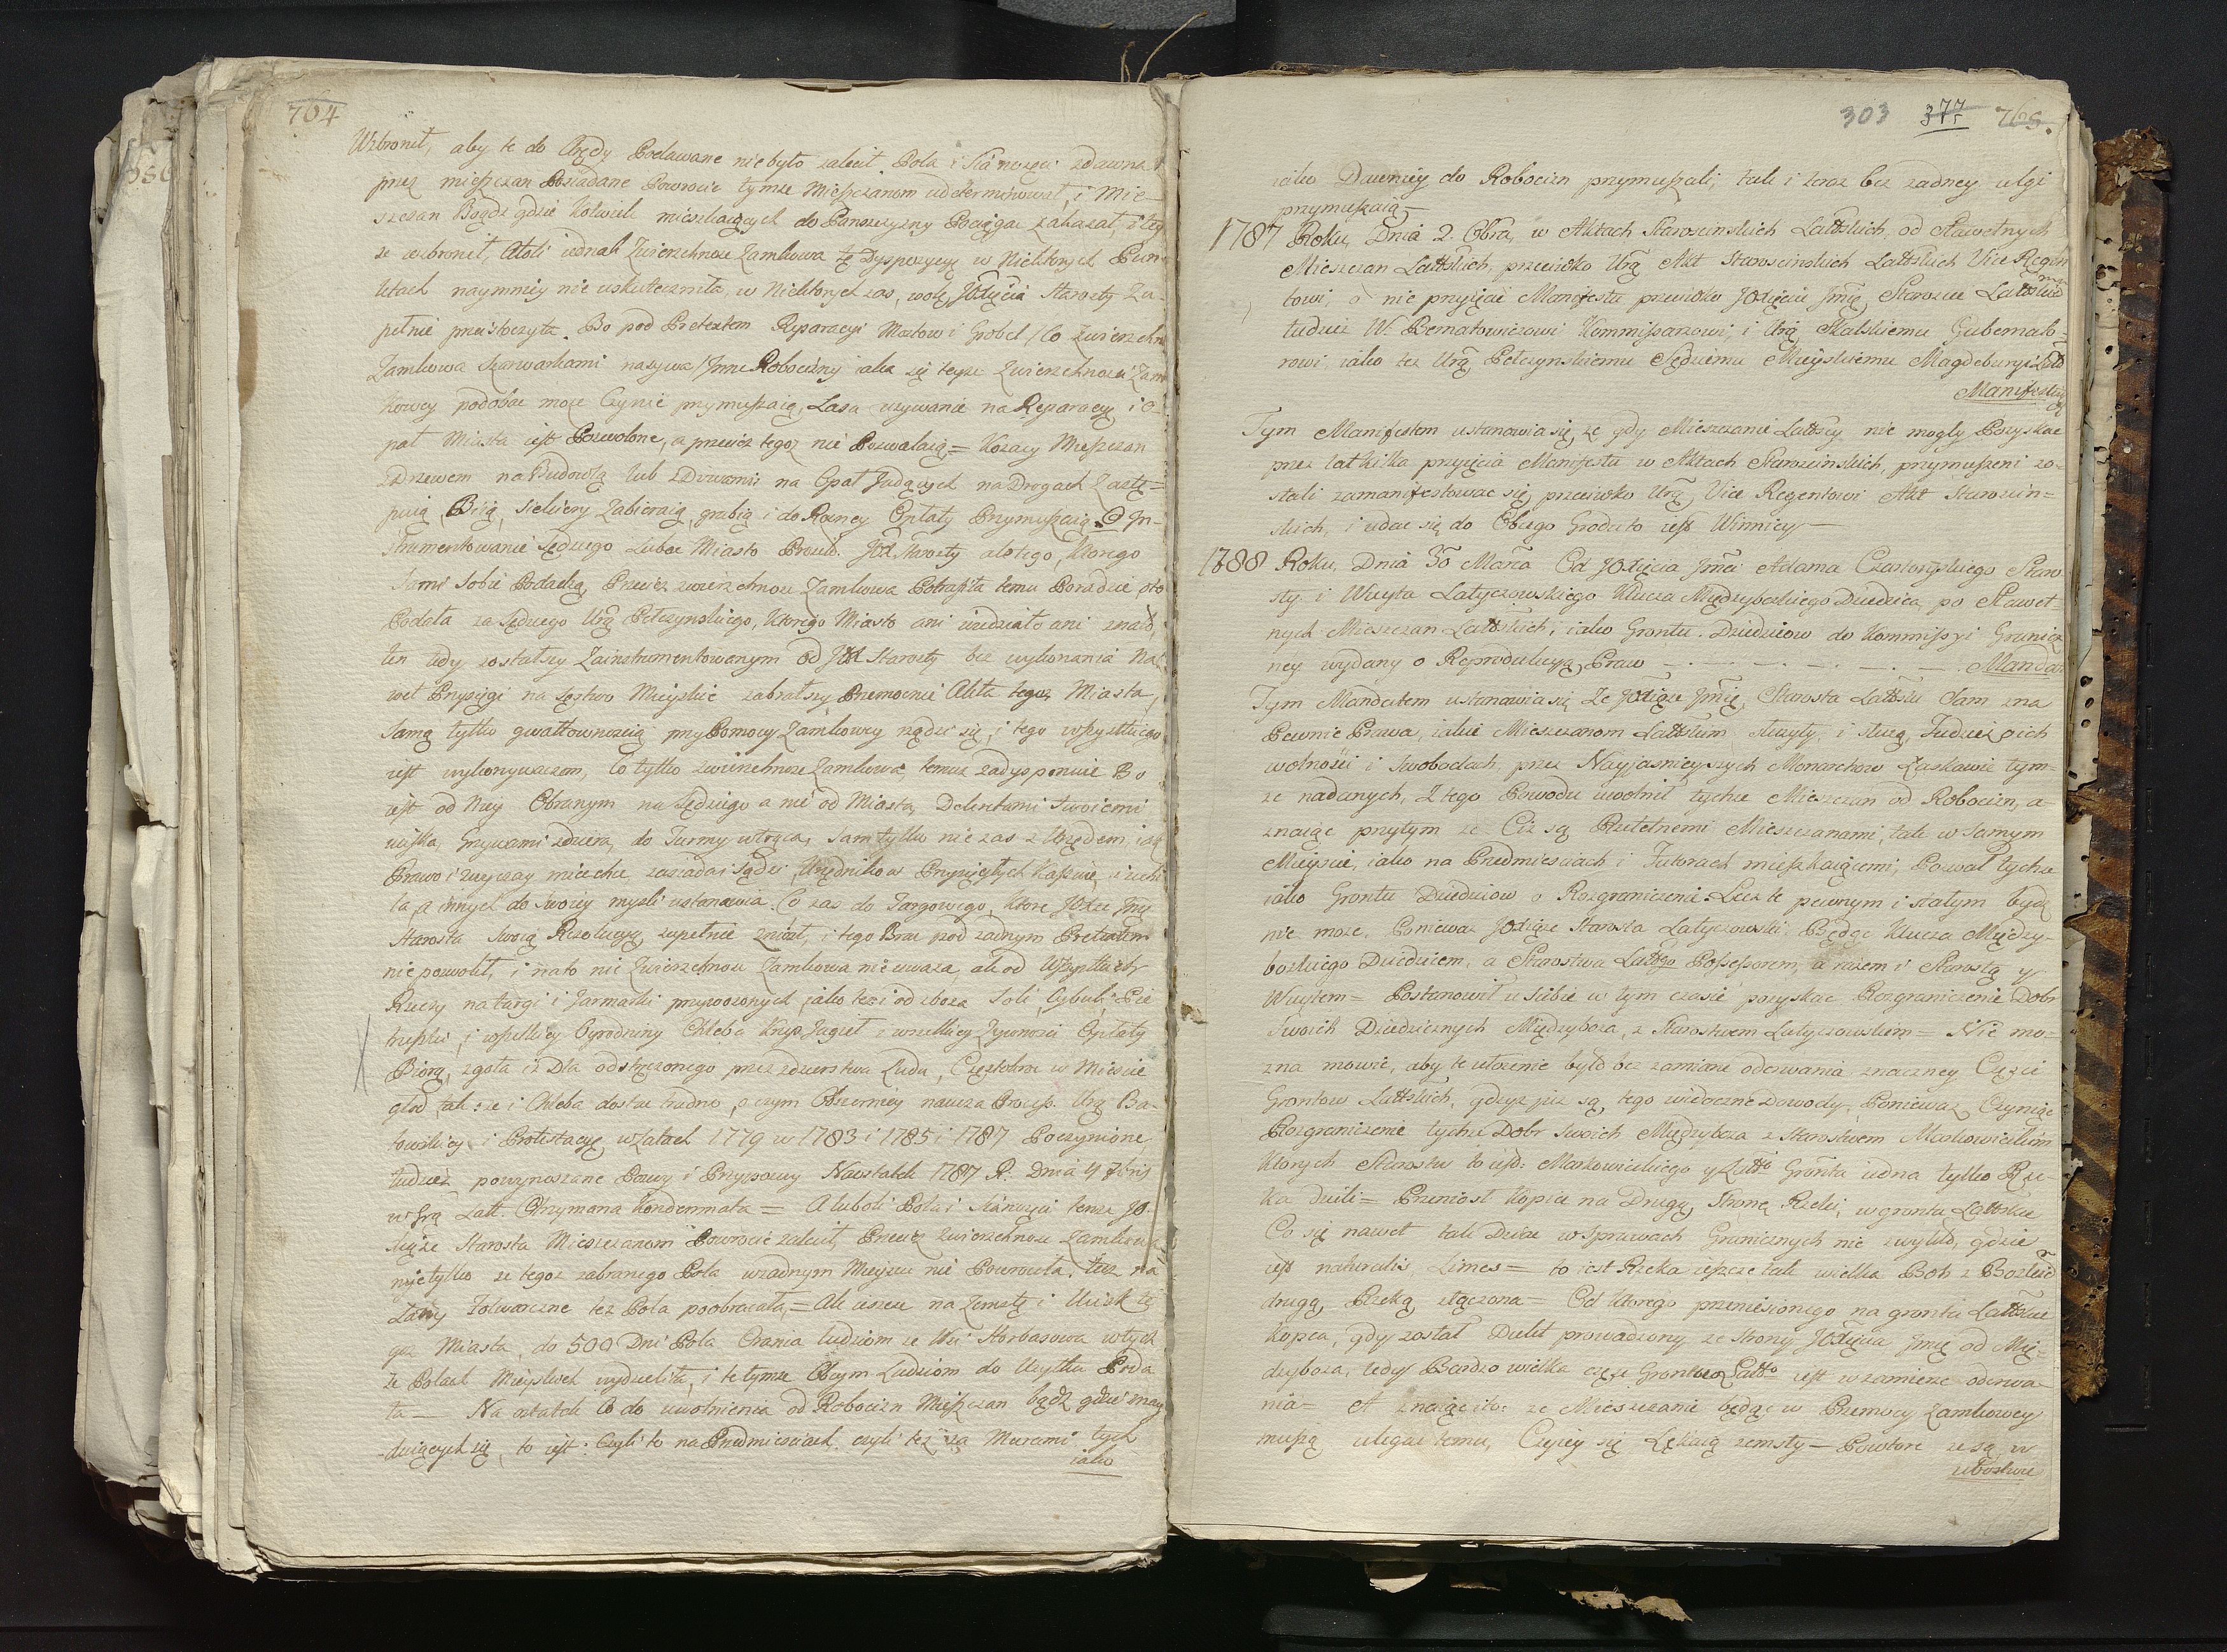 764
Wzbronił, aby te do Arędy Podawane niebyło zalecił Pola i Sianożęci zdawna
przez mieszczan Posiadane Powrocic tymże Mieszczanom udeterminował, i Mie-
szczan Bądz gdzie kolwiek mieszkaiących do Panszczyzny Pociągac zakazał, i teg
że wzbronił, Atoli iednak Zwierzchnosc Zamkowa tę Dyspozycyę w Niektorych Pun-
ktach naymniey nie uskuteczniła, w Niektorych zas, wolę JOXięcia Starosty Zu-
pełnie przeistoczyła. Bo pod Pretextem Reparacyi Mostow i Grobel / Co Zwierzchn
Zamkowa Szarwarkami nazywa / Inne Robocizny iakie się teyże Zwierzchnosci Zam
kowey podobac może Czynic przymuszaią, Lasu używanie na Reparacyę i O-
pał Miasta iest Pozwolone, a przecież tegoż nie Pozwalaią = Kozacy Mieszczan
z Drzewem na Budowlą lub z Drwami na Opał Jadących na Drogach Zastę=
puią, Biią, Siekiery Zabieraią, grabią i do Rożney Opłaty Przymuszaią. O In-
strumentowanie Sędziego Lubo Miasto Prosiło JOX. Starosty ale tego, ktorego
Sami Sobie Podadzą, Przecież zwierzchnosc Zamkowa Potrafiła temu Poradzic bo
Podała za Sędziego Urg Pełczynskiego, ktorego Miasto ani widziało ani znało,
ten tedy zostałszy Zainstrumentowanym od JOX Starosty bez wykonania Na
wet Przysięgi na Sęstwo Mieyskie zabrałszy Przemocnie Akta tegoż Miasta,
Samą tylko gwałtownoscią przy Pomocy Zamkowey rządzi się, i tego wszystkiego
iest wykonywaczem, Co tylko zwierzchnosc Zamkowa, temuż zadysponuie Bo
iest od Niey Obranym na Sędziego a nie od Miasta, Delentami Swoiemi
uciska, Grzywami zdziera, do Turmy wtrąca, Sam tylko nie zas z Urzędem, iak
Prawo i zwyczay miec chce zasiada i Sądzi, Urzędnikow Przysięgłych Kassuie, i uchi
la, a innych do Swoiey mysli ustanawia. Co zas do Targowego, ktore JOXże Jmę
Starosta Swoią Rezolucyą zupełnie zniosł, i tego Brac pod żadnym Pretextem
nie pozwolił, i na to nic Zwierzchnosc Zamkowa nie uważa, ale od Wszystkich
Rzeczy na targi i Jarmarki przywożonych, jako też i od zboża, Soli, Cybuli, Pie
truszki, i wszelkiey Ogrodniny Chleba Krup Jagieł i wszelkiey żywnosci Opłaty
Biorą, zgoła iż Dla odstręczonego przez zdzierstwa Ludu, Częstokroc w Miescie
głod tak: że i Chleba dostac trudno, o czym Obszerniey naucza Process. Urg Ba-
towskiey i Protestacye w Latach 1779 w 1783 i 1785 i 1787 Poczynione
tudzież powynoszone Pozwy i Przypozwy Naostatek 1787 R: Dnia 4 7bris
w Grg Latt. Otrzymana Kondemnata = A luboli Pola i Sianożęci tenże JO-
Xiąże Starosta Mieszczanom Powrocic zalecił, Przecież Zwierzchnosc Zamkowa
nie tylko że tegoż zabranego Pola w żadnym Mieyscu nie Powrociła. Lecz na
Łany Folwarczne też Pola poobracała, = Ale ieszcze na Zemstę i Ucisk te
goż Miasta, do 500 Dni Pola Orania ludziom ze Wsi Horbasowa w tych
że Polach Mieyskich wydzieliła, i te tymże Obcym Ludziom do Użytku Poda
ła — Na ostatek Co do uwolnienia od Robocizn Mieszczan bądz gdzie znay
duiących się, to iest: Czyli to na Przedmiesciach, czyli też za Murami tych
iako
303 377 765.
iako Dawniey do Robocizn przymuszali, tak i teraz bez żadney ulgi
przymuszaią —
1787 Roku Dnia 2. Obra, w Aktach Staroscinskich Lattskich od Sławetnych
Mieszczan Lattskich, przeciwko Urg Akt Staroscinskich Lattskich Vice Regen
towi, o nie przyięcie Manifestu przeciwko JOXięciu Jmę Staroscie Latoskie
tudzież W. Bernatowiczowi Kommissarzowi, i Urg Skalskiemu Gubernato-
rowi, iako też Urg Pełczynskiemu Sędziemu Mieyskiemu Magdeburyi Latt
Manifestu
Tym Manifestem ustanawia się, że gdy Mieszczanie Lattscy nie mogły Pozyskac
przez lat kilka przyięcia Manifestu w Aktach Staroscinskich, przymuszeni zo-
stali zamanifestowac się przeciwko Urg Vice Regentowi Akt Staroscin=
skich, i udac się do Obcego Grodu to iest Winnicy —
1788 Roku, Dnia 30 Marca Od JOXięcia Jmci Adama Czartoryskiego Staro
sty i Woyta Latyczowskiego Klucza Międzybożkiego Dziedzica, po Sławet-
nych Mieszczan Lattskich, iako Gruntu Dziedzicow do Kommissyi Granicz
ney wydany o Reprodukcyą Praw — . — . — . — . — Mandat
Tym Mandatem ustanawia się że JOXiąże Jmę Starosta Lattski Sam zna
Pewnie Prawa, iakie Mieszczanom Lattskim służyły, i służą, Tudzież o ich
wolnosci i Swobodach przez Nayjasnieyszych Monarchow Łaskawie tym-
że nadanych, z tego Powodu uwolnił tychże Mieszczan od Robocizn, a-
znaiąc przytym że Ciż są Rzetelnemi Mieszczanami, tak w Samym
Miescie, iako na Przedmiesciach i Futorach mieszkaiącemi, Pozwał tychże
iako Gruntu Dziedzicow o Rozgraniczenie. Lecz te pewnym i stałym bydz
nie może, Ponieważ JOXiąże Starosta Latyczowski Będąc Klucza Między-
bozkiego Dziedzicem, a Starostwa Lattgo Possessorem, a razem i Starostą y
Woytem = Postanowił u Siebie w tym czasie pozyskac Rozgraniczenie Dobr
Swoich Dziedzicznych Międzyboza, z Starostwem Latyczowskim = Nie mo-
zna mowic, aby te ułozenie było bez zamiaru oderwania znaczney Częsci
Gruntow Lattskich, gdyż już są, tego widoczne Dowody, Ponieważ Czyniąc
Rozgraniczenie tychże Dobr Swoich Międzyboza z Starostwem Markowieckim
Ktorych Starostw to iest: Markowieckiego y Lattgo Grunta iedna tylko Rze-
ka dzieli = Przeniosł Kopiec na Drugą Stronę Rzeki, w grunta Lattskie
Co się nawet tak Dziac w Sprawach Granicznych nie zwykło, gdzie
iest naturalis Limes = to iest Rzeka ieszcze tak wielka Boh z Bożkiem
drugą Rzeką złączona = Od ktorego przeniesionego na grunta Lattskie
Kopca, gdy został Dukt prowadzony ze Strony JOXięcia Jmę od Mię-
dzyboza, tedy Bardzo wielka częsc Gruntow Lattch iest w zamierze oderwa-
nia = A znaiąc to: że Mieszczanie będąc w Przemocy Zamkowey
muszą ulegac temu, Częscią się Lękaią zemsty — Powtore że są w
uboztwie